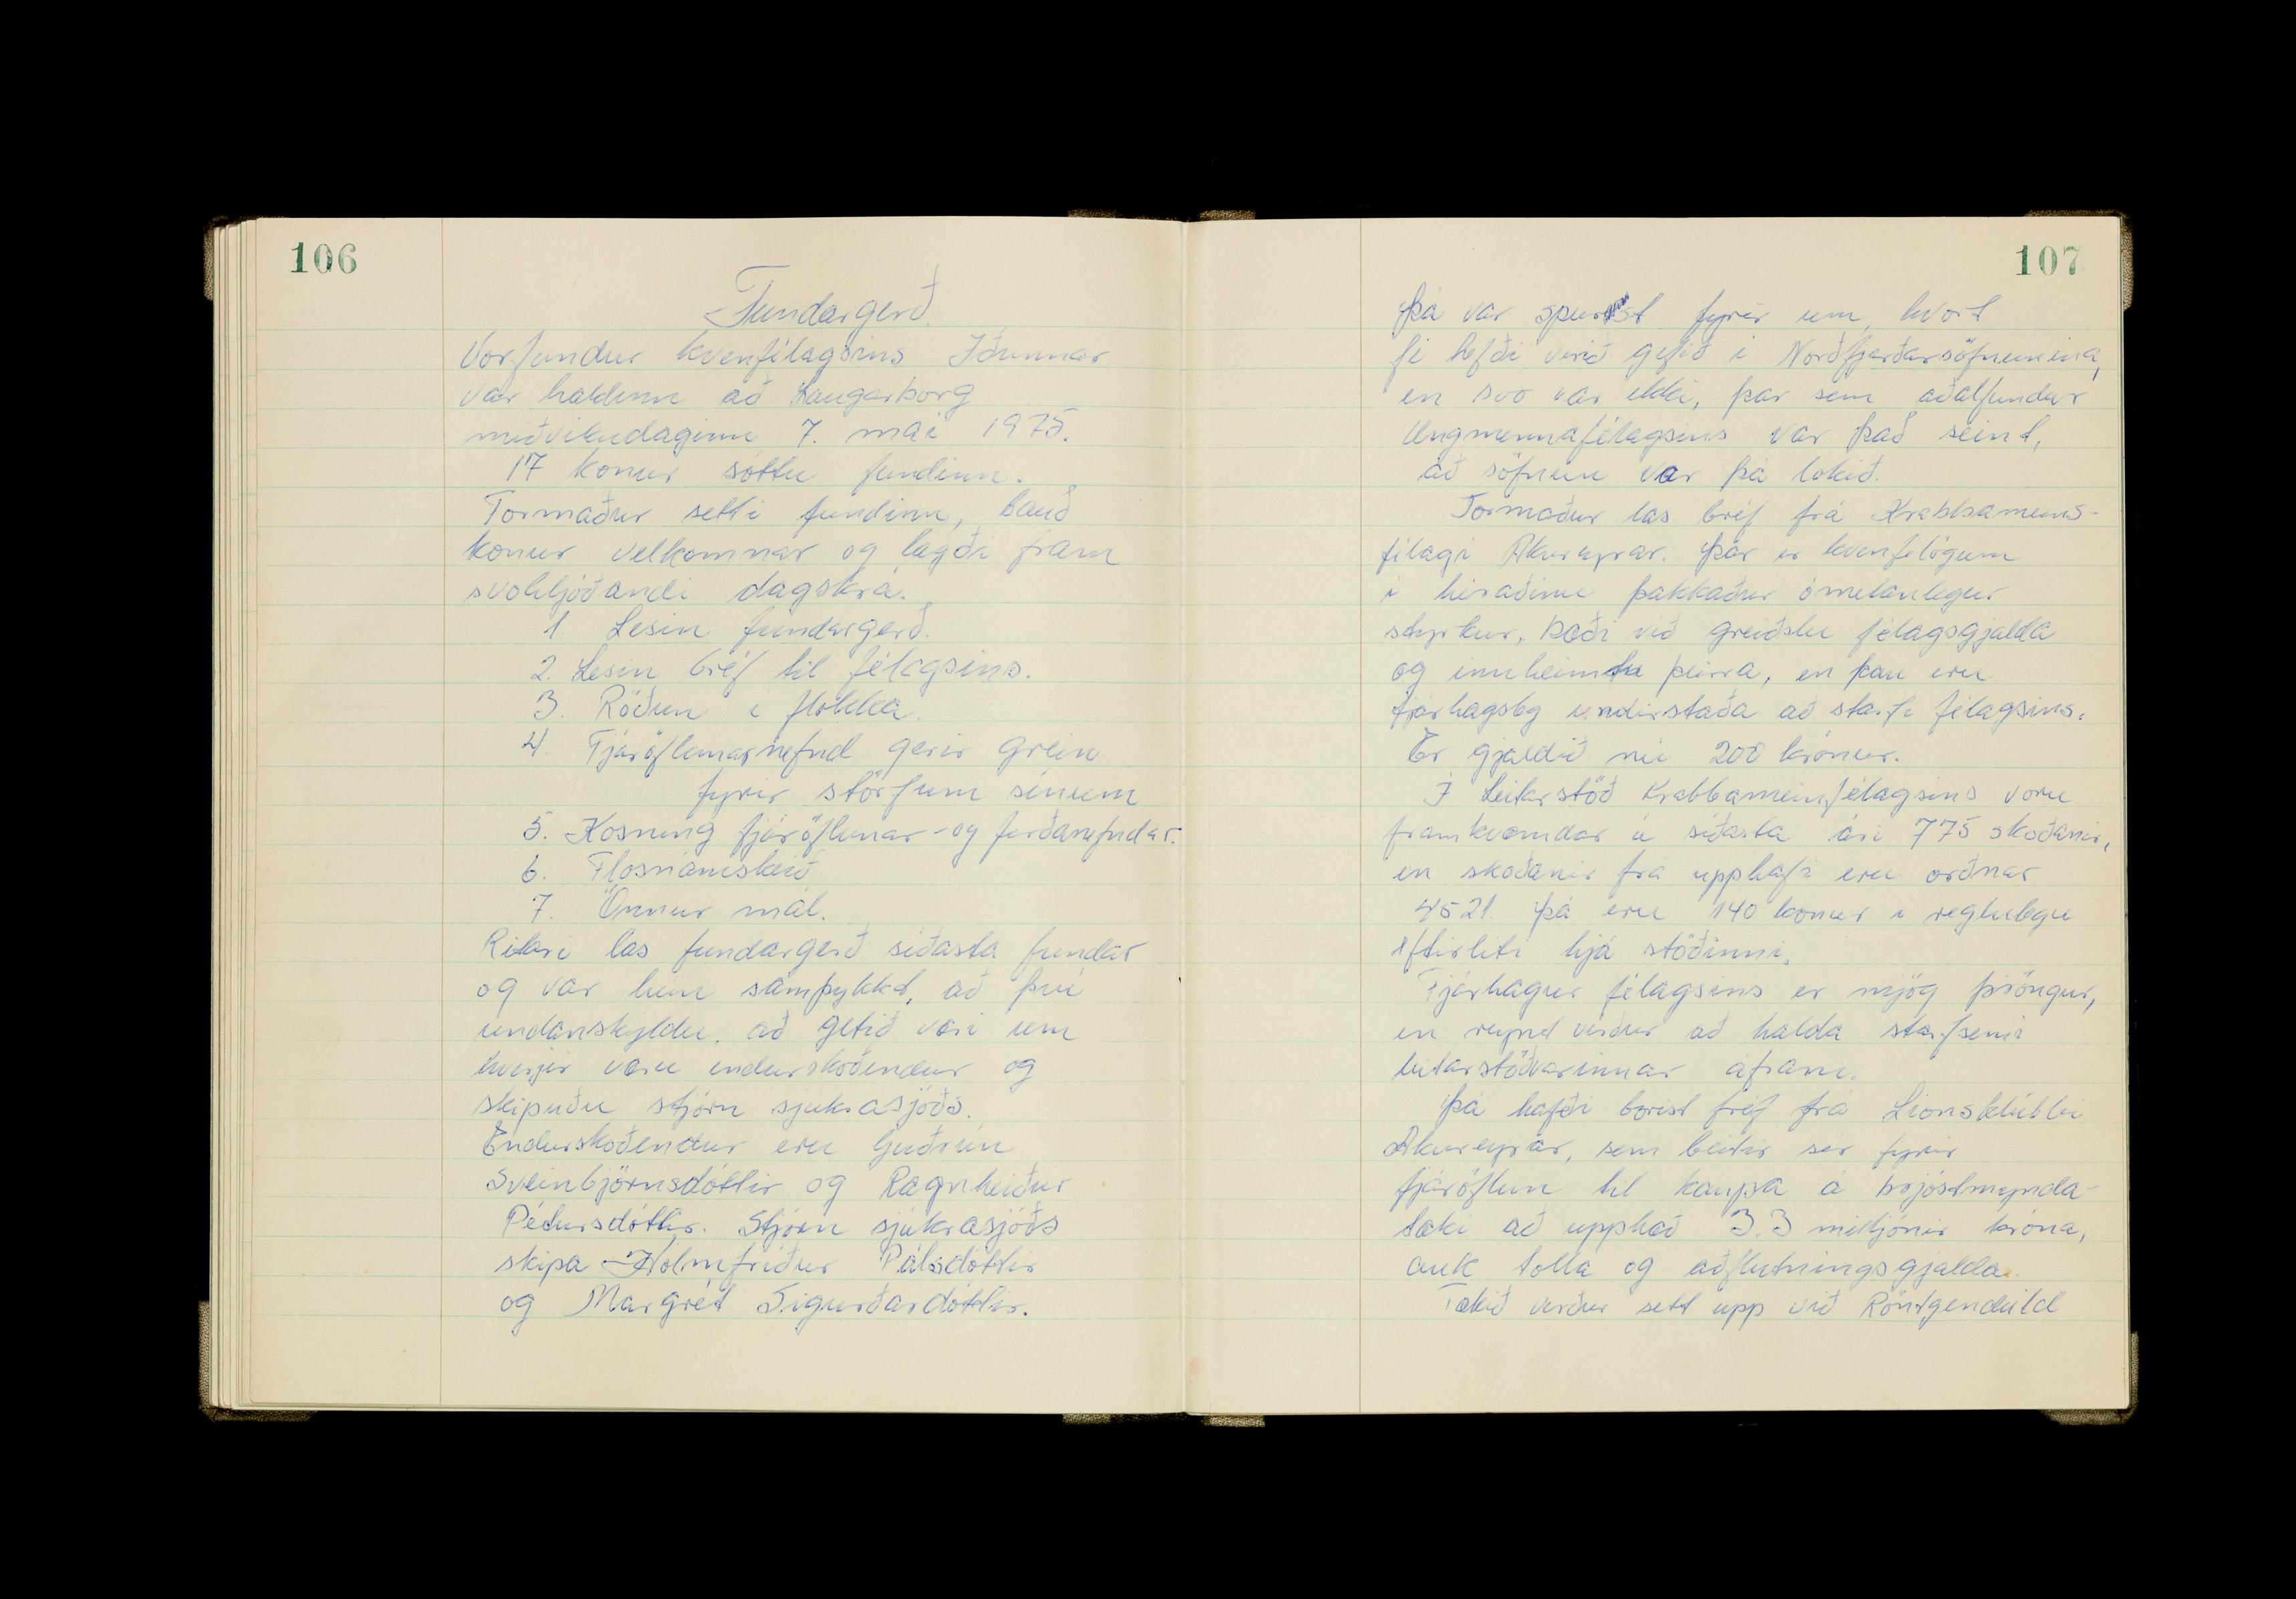 106
Fundargerð
Vorfundur kvenfélagsins Iðunnar
var haldinn að Laugarborg
miðvikudaginn 7. maí 1975.
17 konur sóttu fundinn.
Formaður setti fundinn, bauð
konur velkomnar og lagði fram
svohljóðandi dagskrá.
1 Lesin fundargerð.
2. Lesin bréf til félagsins.
3. Röðun í flokka
4. Fjáröflunarnefnd gerir grein
fyrir störfum sínum
5. Kosning fjáröflunar- og ferðanefndar.
6. Flosnámskeið
7. Önnur mál.
Ritari las fundargerð síðasta fundar
og var hún samþykkt, að því
undanskyldu, að getið væri um
hverjir væru endurskoðendur og
skipuðu stjórn sjúkrasjóðs.
Endurskoðendur eru Guðrún
Sveinbjörnsdóttir og Ragnheiður
Pétursdóttir. Stjórn sjúkrasjóðs
skipa Hólmfríður Pálsdóttir
og Margrét Sigurðardóttir.
107
Þá var spurst fyrir um, hvort
fé hefði verið gefið í Norðfjarðarsöfnunina,
en svo var ekki, þar sem aðalfundur
Ungmennafélagsins var það seint,
að söfnun var þá lokið.
Formaður las bréf frá Krabbameins-
félagi Akureyrar. Þar er kvenfélögum
í héraðinu þakkaður ómetanlegur
styrkur, bæði við greiðslu félagsgjalda
og innheimtu þeirra, en þau eru
fjárhagsleg undirstaða að starfi félagsins.
Er gjaldið nú 200 krónur.
Í Leitarstöð Krabbameinfélagsins voru
framkvæmdar á síðasta ári 775 skoðanir,
en skoðanir frá upphafi eru orðnar
4521. Þá eru 140 konur í reglulegu
eftirliti hjá stöðinni.
Fjárhagur félagsins er mjög þröngur,
en reynt verður að halda starfsemi
leitarstöðvarinnar áfram.
Þá hafði borist bréf frá Lionsklúbbi
Akureyrar, sem beitir sér fyrir
fjáröflun til kaupa á brjóstmynda-
tæki að upphæð 3.3 milljónir króna,
auk tolla og aðflutningsgjalda.
Tækið verður sett upp við Röntgendeild